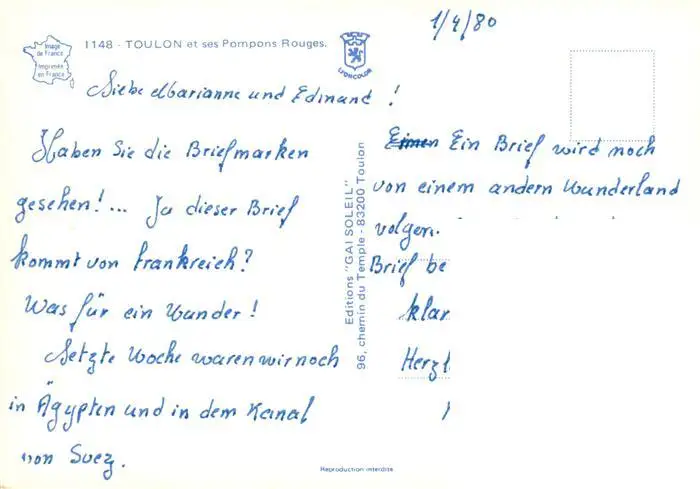 1/4/80
Image
de France
Imprimée
en France
1148 - TOULON et ses Pompons Rouges.
LYONCOLOR
Liebe Marianne und Edmund !
Haben Sie die Briefmarken
gesehen! ... Ja dieser Brief
kommt von Frankreich?
Was für ein Wunder !
Letzte Woche waren wir noch
in Ägypten und in dem Kanal
von Suez.
Editions "GAI SOLEIL"
96, chemin du Temple - 83200 Toulon
Einen Ein Brief wird noch
von einem andern Wunderland
volgen.
Brief be
klar
Herzl
Reproduction interdite